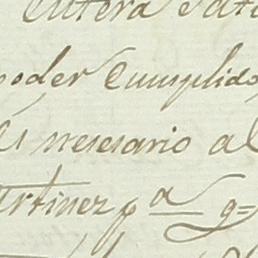 entera
poder Cumplido
es nesesario al
artinez pª q=